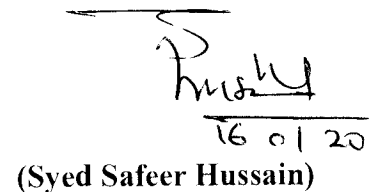 16 01 20
(Syed Safeer Hussain)